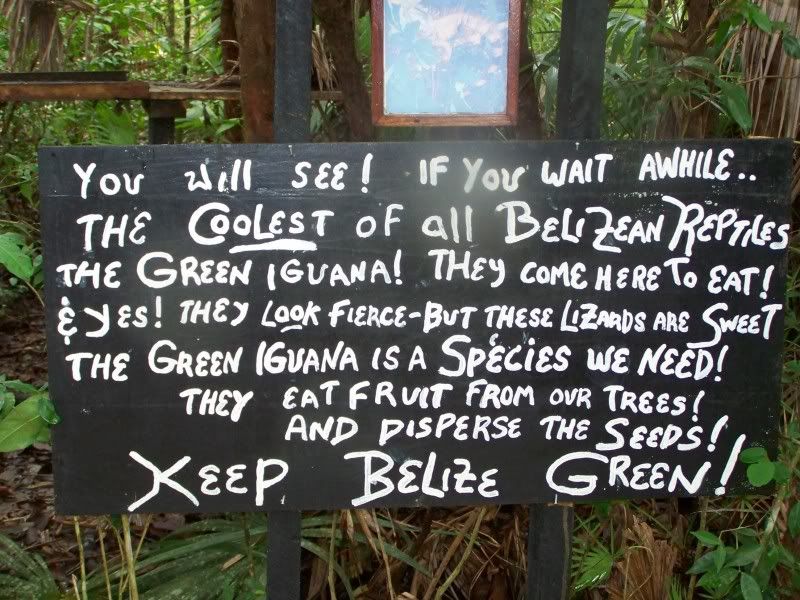 You will SEE! IF You WAIT AWHILE..
THE COOLEST OF all BELIZEAN REPTILES
THE GREEN IGUANA! THEY COME HERE TO EAT!
& YES! THEY LOOK FIERCE-BUT THESE LIZARDS ARE SWEET
THE GREEN IGUANA IS A SPECIES WE NEED!
THEY EAT FRUIT FROM OUR TREES!
AND DISPERSE THE SEEDS!
KEEP BELIZE GREEN!